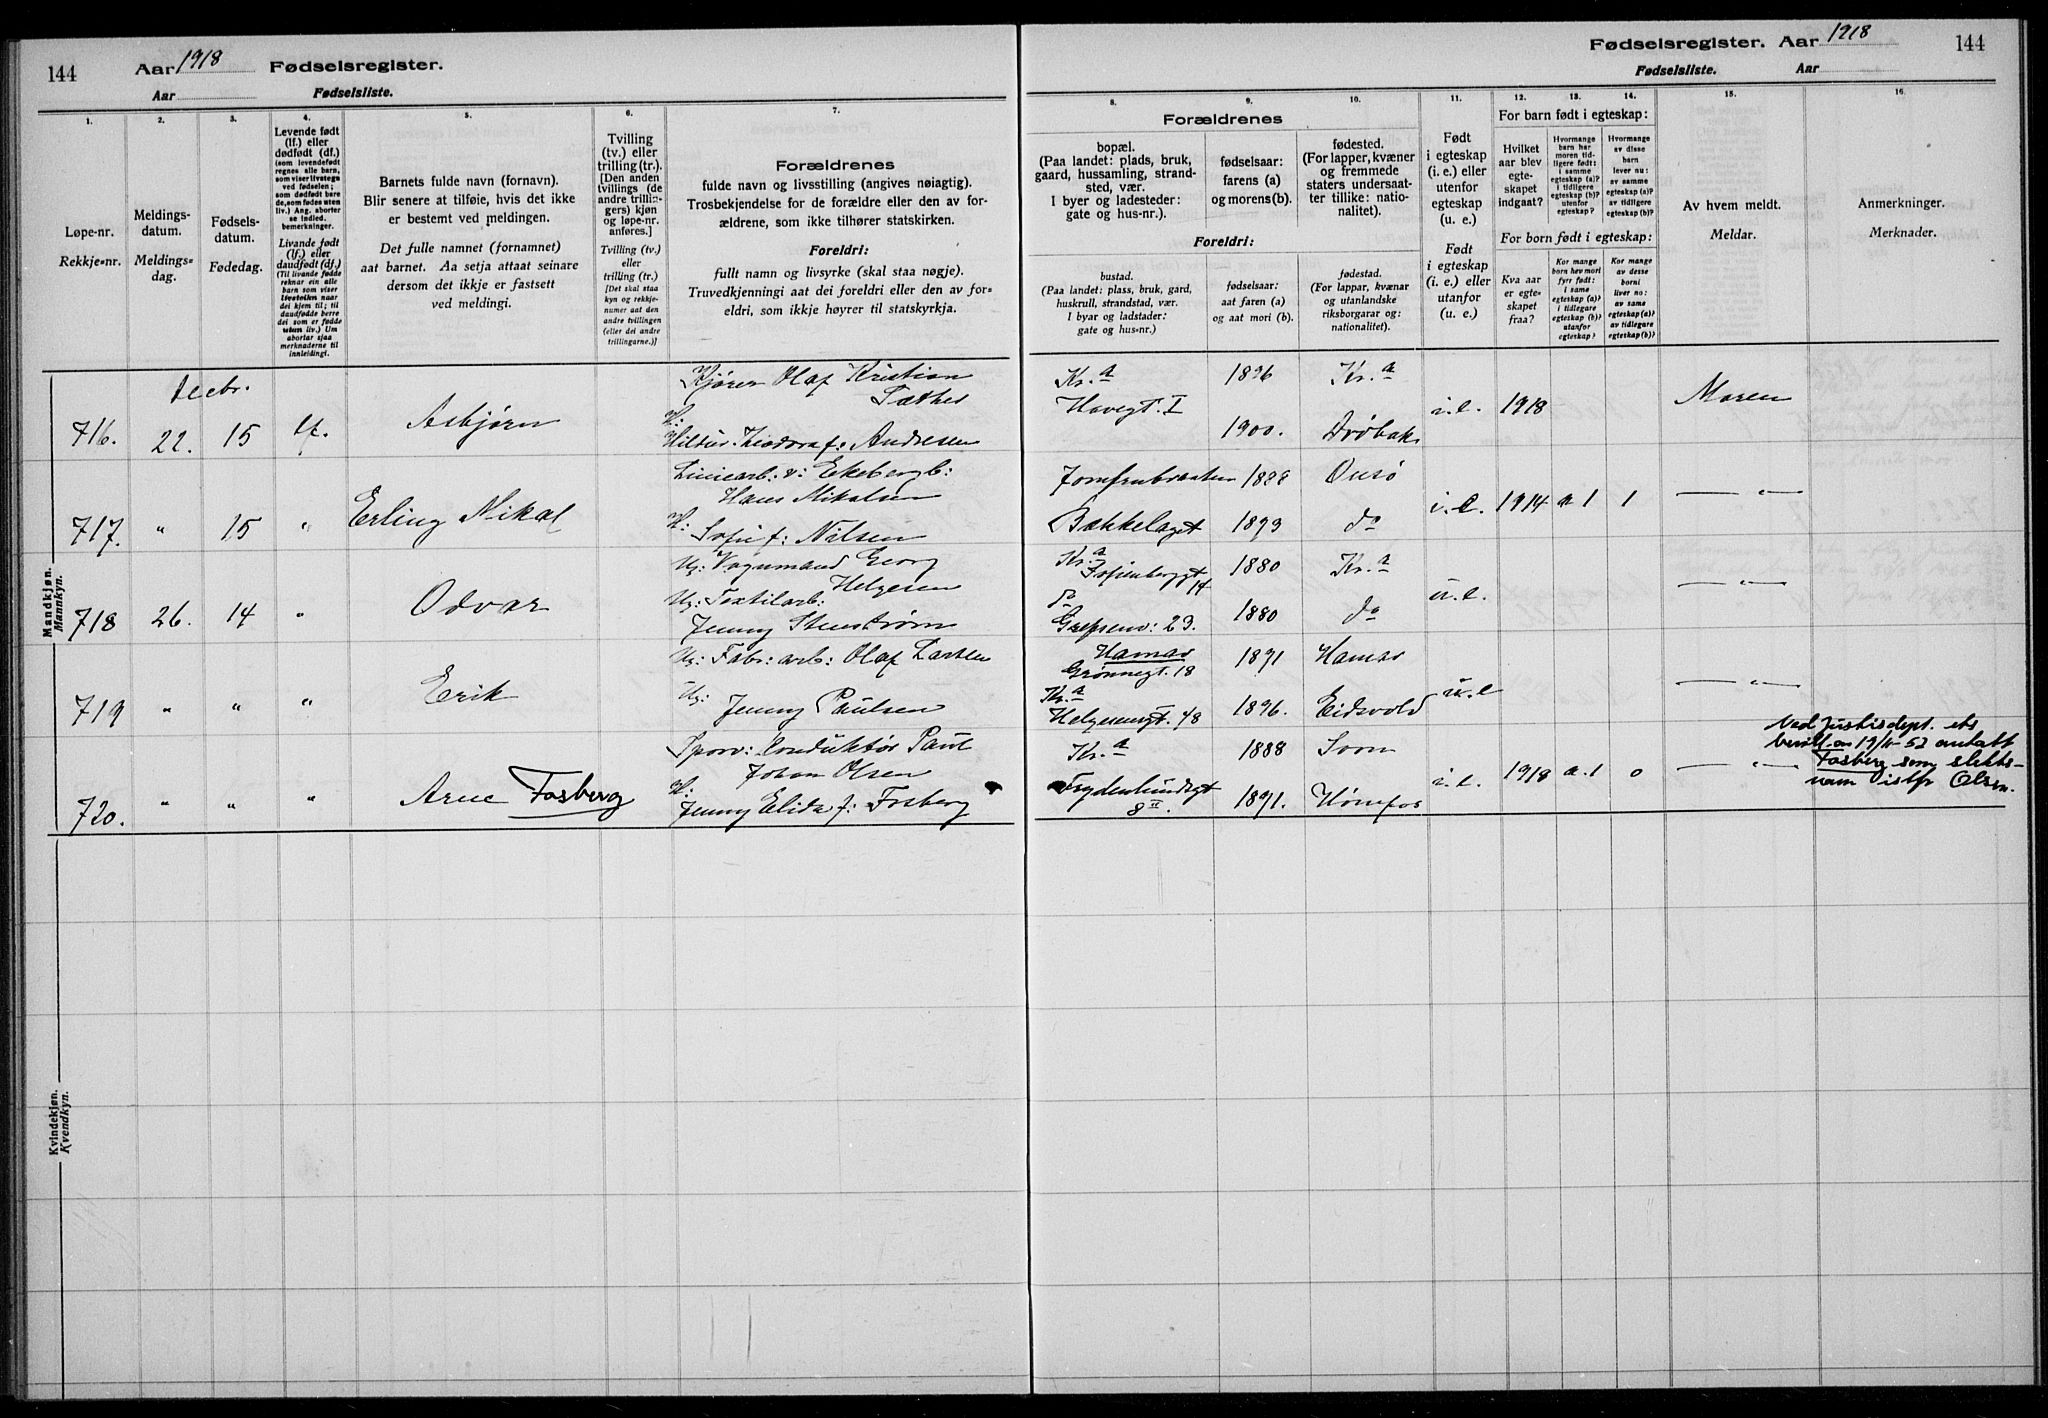 144
Aar 1918 Fødselsregister.
Aar Fødselsliste.
1.
Løpe-nr.
Rekkje-nr.
2.
Meldings-
datum.
Meldings-
dag.
3.
Fødsels-
datum.
Fødedag.
4.
Levende født
(lf.) eller
dødfødt (df.)
(som levendefødt
regnes alle barn,
som viser livstegn
ved fødselen;
som dødfødt bare
de, som fødes uten
liv.) Ang. aborter
se indled.
bemerkninger.
Livande født
(lf.) eller
daudfødt (df.)
(Til livande fødde
reknar ein alle
born som viser
livsteikn naar
dei kjem til; til
daudfødde berre
dei som er fødde
uten liv.) Um
abortar sjaa
merknaderne til
innleidingi.
5.
Barnets fulde navn (fornavn).
Blir senere at tilføie, hvis det ikke
er bestemt ved meldingen.
Det fulle namnet (fornamnet)
aat barnet. Aa setja attaat seinare
dersom det ikkje er fastsett
ved meldingi.
6.
Tvilling
(tv.) eller
trilling (tr.).
[Den anden
tvillings (de
andre trillin-
gers) kjøn
og løpe-nr.
anføres.]
Tvilling (tv.)
eller
trilling (tr.)
[Det skal staa
kyn og rekkje-
numer aat den
andre tvillingen
(eller dei andre
trillingarne.)]
7.
Forældrenes
fulde navn og livsstilling (angives nøiagtig).
Trosbekjendelse for de forældre eller den av for-
ældrene, som ikke tilhører statskirken.
Foreldri:
fullt namn og livsyrke (skal staa nøgje).
Truvedkjenningi aat dei foreldri eller den av for-
eldri, som ikkje høyrer til statskyrkja.
Mandkjøn.
Mannkyn.
Decbr.
716. 22. 15 lf. Asbjørn
Kjører Olaf Kristian
Sæther
H:
Hildur Teodora f: Andresen
717. " 15 " Erling Nikal
Liniearb: v: Ekebergb:
Hans Mikalsen
H:
Sofie f: Nilsen
718 26. 14 " Odvar
Ug: Vognmand Georg
Helgesen
Ug: Textilarb:
Jenny Stenstrøm
719 " " " Erik
Ug: Fabr: arb: Olaf Larsen
Ug:
Jenny Paulsen
720. " " " Arne Fosberg
Sporv: konduktør Paul
Johan Olsen
H:
Jenny Elida f: Fosberg
Kvindekjøn.
Kvendkyn.
Fødselsregister. Aar 1918 144
Fødselsliste. Aar
Forældrenes
8.
bopæl.
(Paa landet: plads, bruk,
gaard, hussamling, strand-
sted, vær.
I byer og ladesteder:
gate og hus-nr.).
9.
fødselsaar:
farens (a)
og morens(b).
10.
fødested.
(For lapper, kvæner
og fremmede
staters undersaat-
ter tillike: natio-
nalitet).
Foreldri:
bustad.
(Paa landet: plass, bruk, gard,
huskrull, strandstad, vær.
I byar og ladstader:
gate og hus-nr.)
fødselsaar:
aat faren (a)
og aat mori (b).
fødestad.
(For lappar, kvænar
og utanlandske
riksborgarar og:
nationalitet).
11.
Født
i egteskap
(i. e.) eller
utenfor
egteskap
(u. e.)
Født
i egteskap
(i. e.) eller
utanfor
(u. e.)
For barn født i egteskap:
12.
Hvilket
aar blev
egte-
skapet
indgaat?
13.
Hvormange
barn har
moren tid-
ligere født:
i samme
egteskap (a)?
i tidligere
egteskap (b)?
utenfor
egteskap?
14.
Hvormange
av disse
barn
lever nu:
av samme
egteskap (a)?
av tidligere
egteskap (b)?
For born født i egteskap:
Kva aar
er egte-
skapet
fraa?
Kor mange
born hev mori
fyrr født:
i same
egteskap (a)?
i tidlegare
egteskap (b)?
utanfor
egteskap?
Kor mange
av desse
borni
liver no:
av same
egteskap (a)?
av tidlegare
egteskap (b)?
15.
Av hvem meldt.
Meldar.
16.
Anmerkninger.
Merknader.
Kr.a 1896 Kr.a
Havegt. I i.e. 1918 Moren
1900. Drøbak
Jomfrubraaten 1888 Onsø
i.e. 1914 a 1 1 — " —
Bækkelaget 1893 do
Kr.a
Sofienberggt 14 1880 Kr.a
u.e. — " —
do
Grefsenv: 23. 1880 do
Hamar 1891 Hamar
Grønnegt. 18
u.e — " —
Kr.a
Helgesensgt. 48 1896. Eidsvold
Kr.a 1888
i.e. 1918 a.1 0 — " —
Frydenlundsgt
8 II. 1891. Hønefos
Ved Justisdept. ets
bevill. av 19/11-52 antatt
Fosberg som slekts-
navn istf. Olsen.